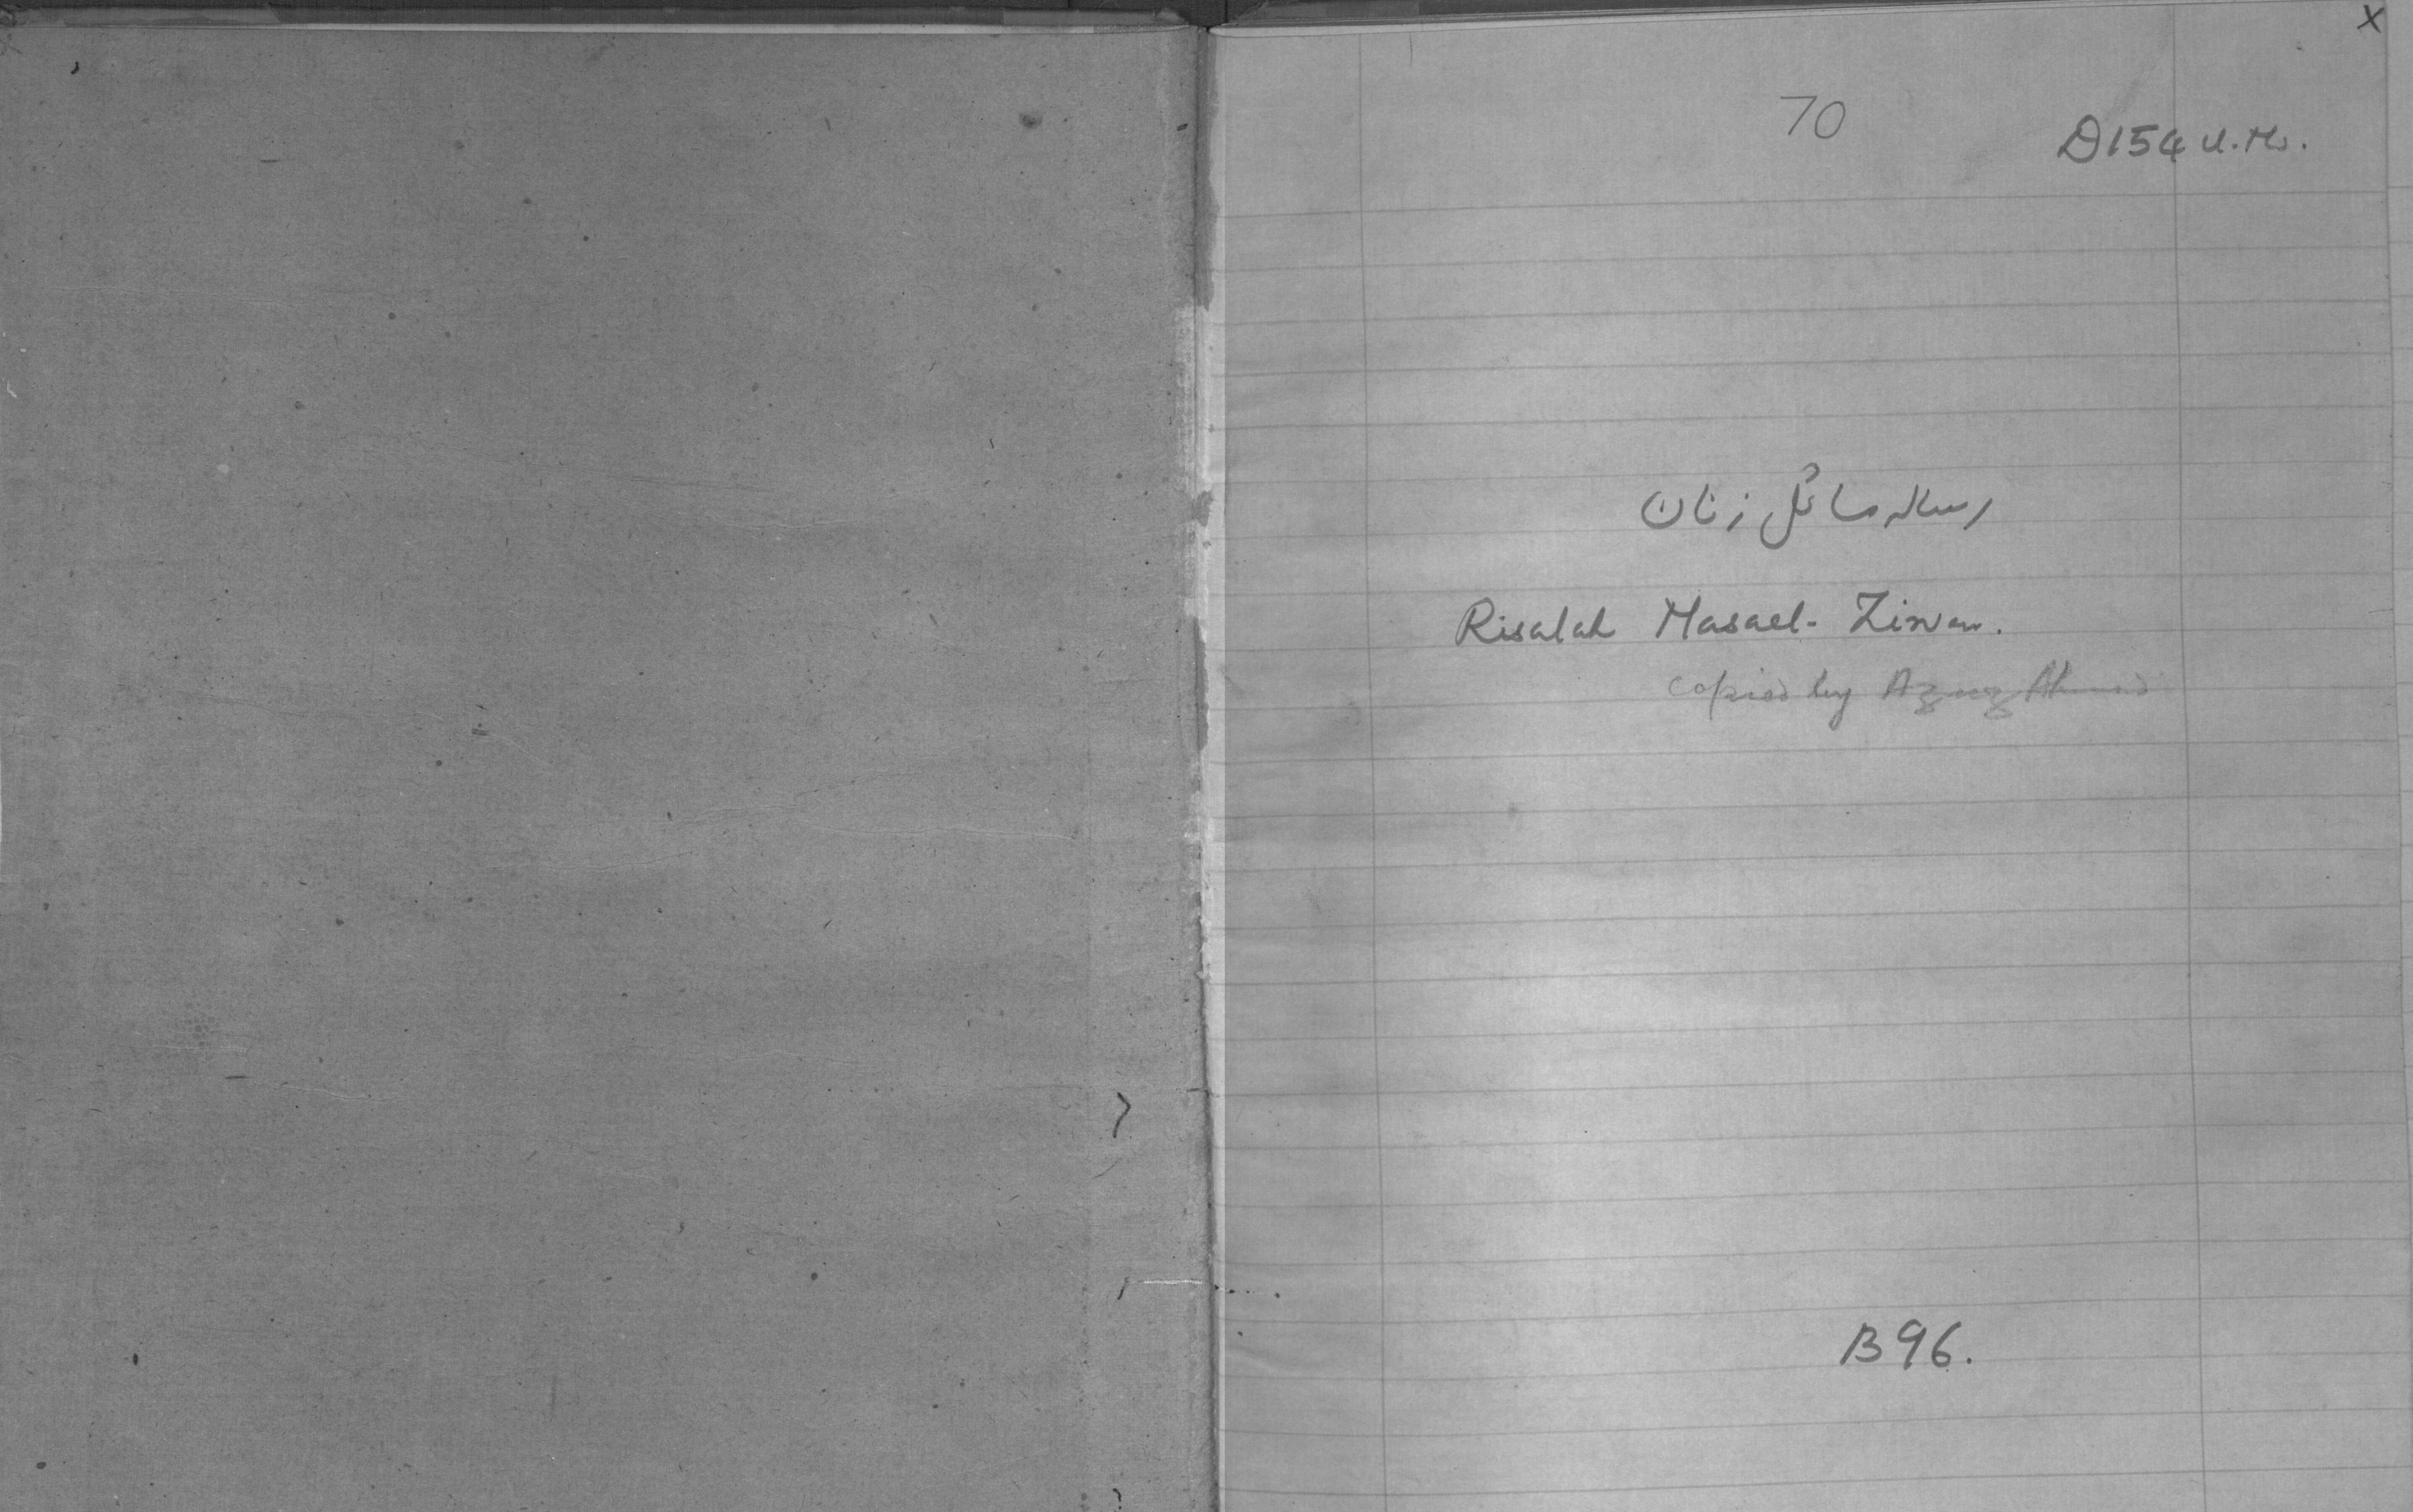 x
70
D154 U.Ms.
رسالہ مسائل زنان
Risalah Masael-Zinan.
copied by Ahmad
B96.